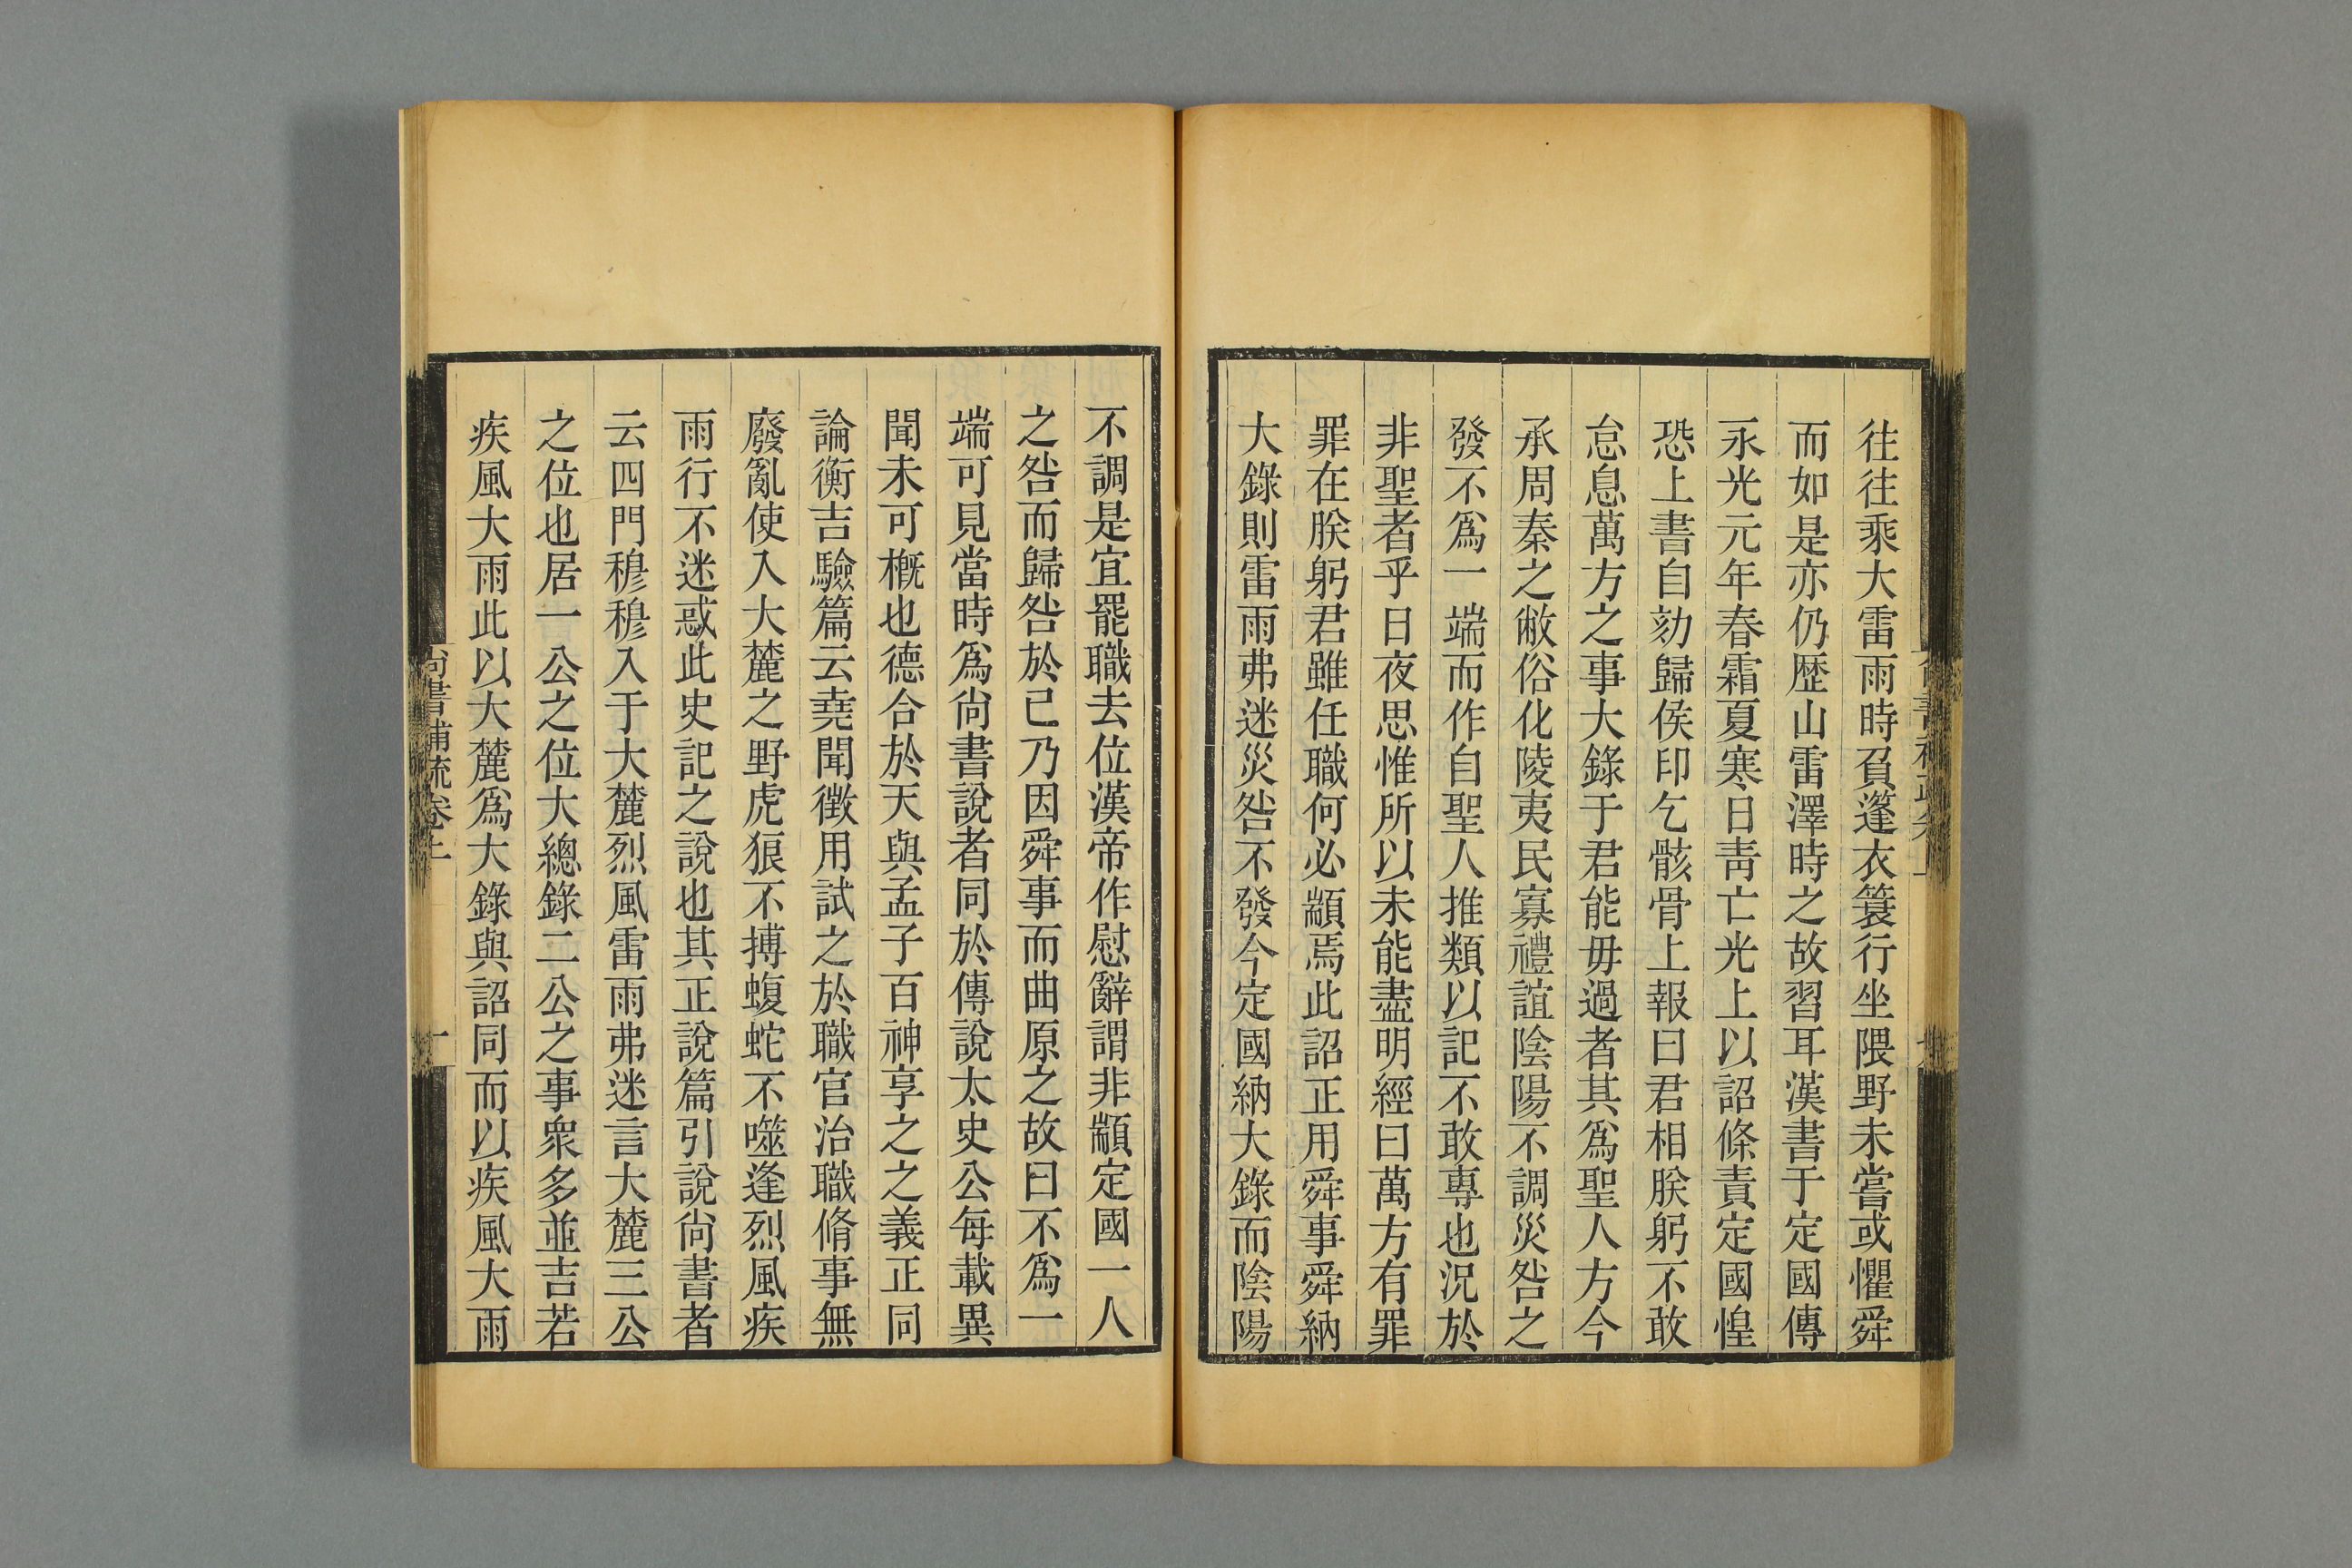 往往乘大雷雨時負蓬衣簑行坐隈野未嘗或懼舜
而如是亦仍歷山雷澤時之故習耳漢書于定國傳
永光元年春霜夏寒日靑亡光上以詔條責定國惶
恐上書自劾歸侯印乞骸骨上報曰君相朕躬不敢
怠息萬方之事大錄于君能毋過者其爲聖人方今
承周秦之敝俗化陵夷民寡禮誼陰陽不調災咎之
發不爲一端而作自聖人推類以記不敢專也況於
非聖者乎日夜思惟所以未能盡明經曰萬方有罪
罪在朕躬君雖任職何必顓焉此詔正用舜事舜納
大錄則雷雨弗迷災咎不發今定國納大錄而陰陽
不調是宜罷職去位漢帝作慰辭謂非顓定國一人
之咎而歸咎於已乃因舜事而曲原之故曰不爲一
端可見當時爲尙書說者同於傳說太史公每載異
聞未可槪也德合於天與孟子百神享之之義正同
論衡吉驗篇云堯聞徵用試之於職官治職脩事無
廢亂使入大麓之野虎狼不搏蝮蛇不噬逢烈風疾
雨行不迷惑此史記之說也其正說篇引說尙書者
云四門穆穆入于大麓烈風雷雨弗迷言大麓三公
之位也居一公之位大總錄二公之事衆多並吉若
疾風大雨此以大麓爲大錄與詔同而以疾風大雨
尙書補疏卷上